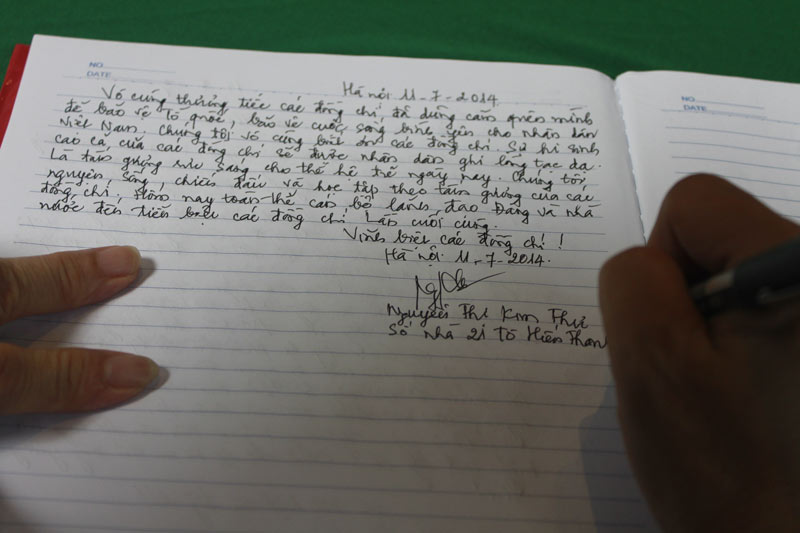 NO
DATE
Hà nội 11-7-2014
Vô cùng thương tiếc các đồng chí đã dũng cảm quên mình
để bảo vệ Tổ quốc, bảo vệ cuộc sống bình yên cho nhân dân
Việt Nam. Chúng tôi vô cùng biết ơn các đồng chí. Sự hi sinh
cao cả của các đồng chí sẽ được nhân dân ghi lòng tạc dạ.
Là tấm gương sáng cho thế hệ trẻ ngày nay. Chúng tôi
nguyện sống, chiến đấu và học tập theo tấm gương của các
đồng chí, Hôm nay toàn thể cán bộ lãnh đạo Đảng và nhà
nước đến tiễn biệt các đồng chí Lần cuối cùng.
Vĩnh biệt các đồng chí!
Hà nội 11-7-2014.
Nguyễn Thị Kim Thu
Số nhà 21 Tô Hiến Thành
NO
DATE